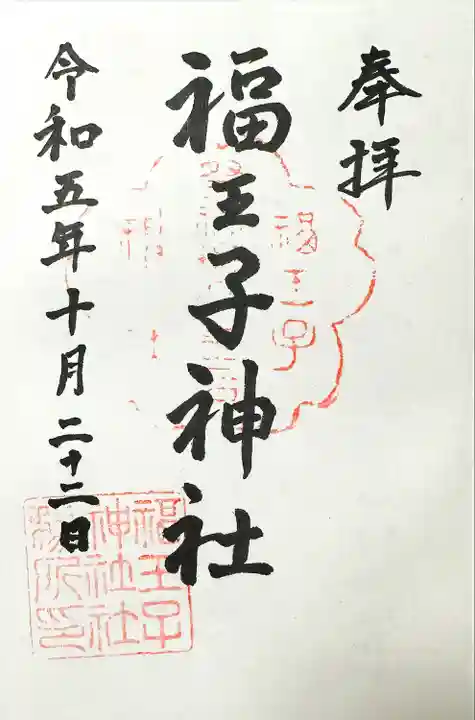 奉拝
福王子神社
令和五年十月二十二日
福王子
福王子
神社社
務所印